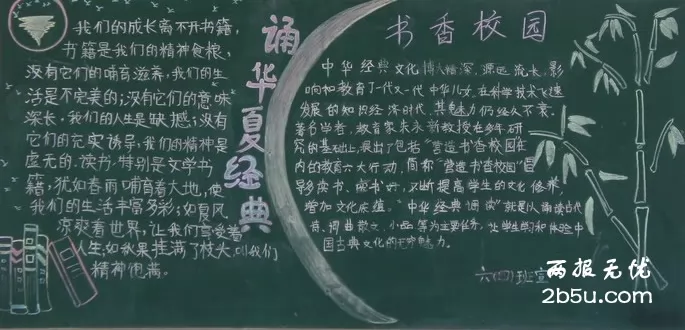 我们的成长离不开书籍,
书籍是我们的精神食粮,
没有它们的哺育滋养,我们的生
活是不完美的;没有它们的意味
深长,我们的人生是缺憾;没有
它们的充实诱导,我们的精神是
虚无的.读书,特别是文学书
籍,犹如春雨哺育着大地,使
我们的生活丰富多彩;如夏风
凉爽看世界,让我们享受着
人生;如秋果挂满了枝头,叫我们
精神饱满。
诵华夏经典
书香校园
中华经典文化博大精深,源远流长,影
响和教育了一代又一代中华儿女.在科学技术飞速
发展的知识经济时代,其魅力仍经久不衰.
著名学者,教育家朱永新教授在多年研
究的基础上,提出了包括"营造书香校园"在
内的教育六大行动,简称"营造书香校园"倡
导读书、不断提高学生的文化修养,
增加文化底蕴。"中华经典诵读"就是以诵读古代
诗、词曲散文、小画等为主要任务,让学生学习和体验中
国古典文化的无穷魅力。
六(四)班宣
两报无忧
2b5u.com